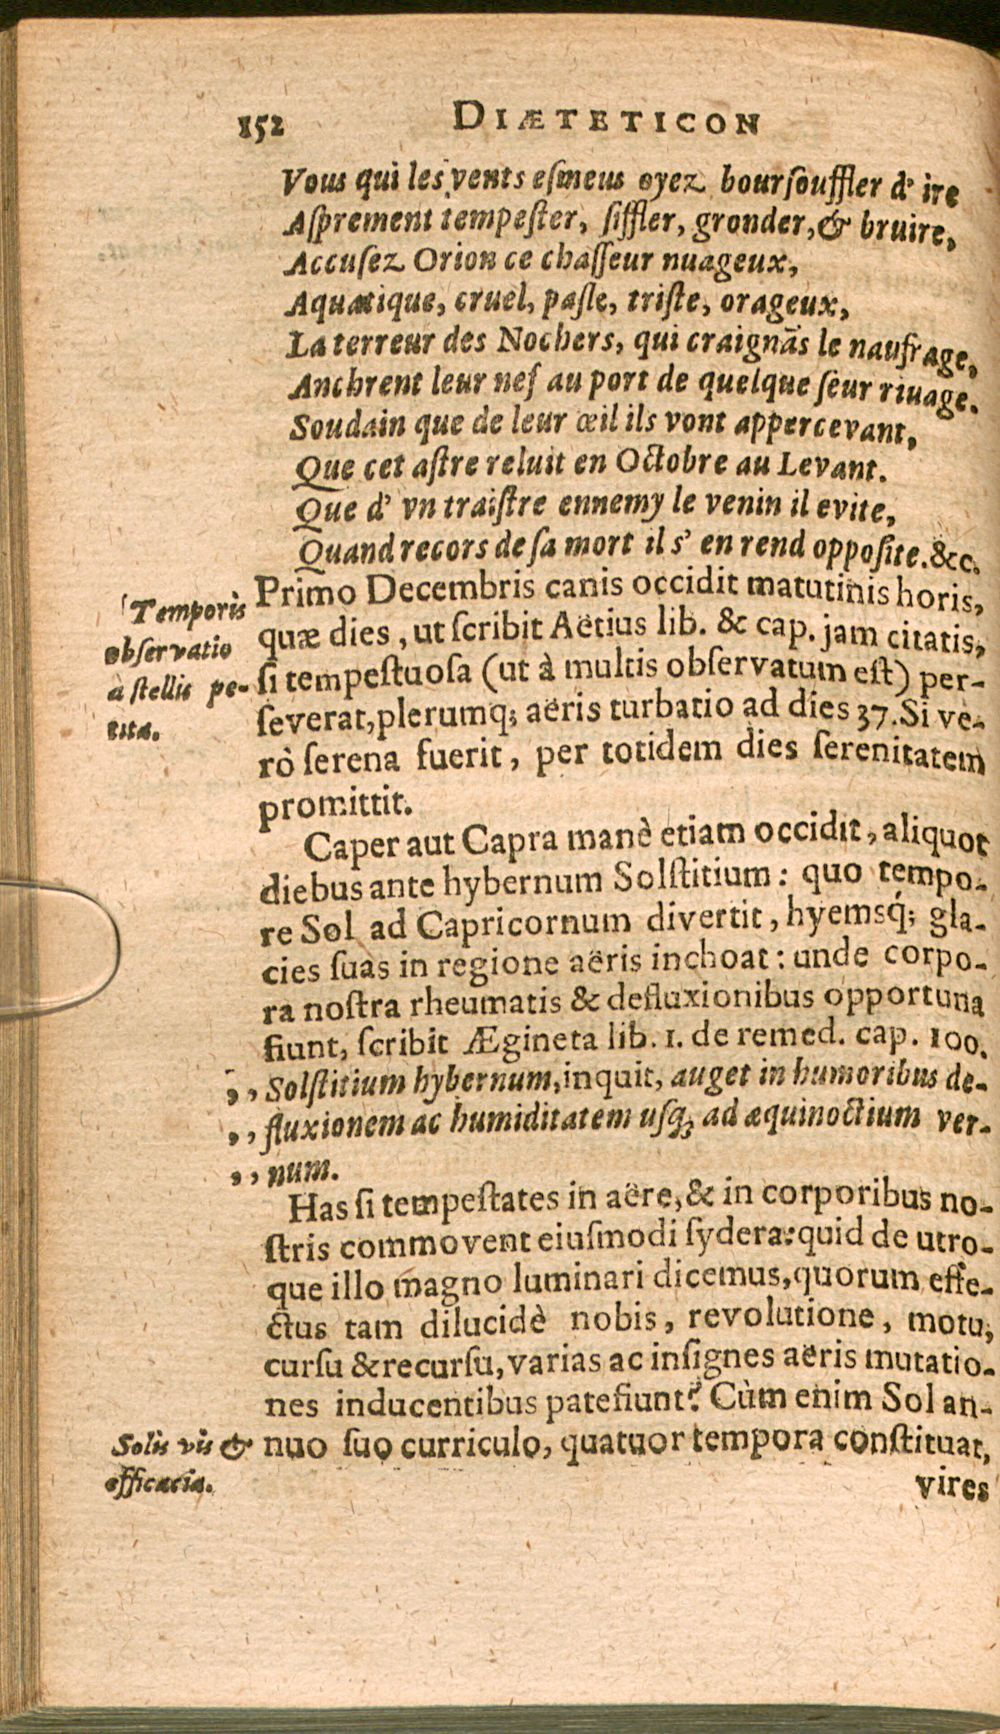 152 DIÆTETICON
Vous qui les vents esmeus oyez boursouffler d' ire
Asprement tempester, siffler, gronder, & bruire,
Accusez Orion ce chasseur nuageux,
Aquatique, cruel, pasle, triste, orageux,
La terreur des Nochers, qui craignãs le naufrage,
Anchrent leur nef au port de quelque seur rivage.
Soudain que de leur œil ils vont appercevant,
Que cet astre reluit en Octobre au Levant.
Que d' vn traistre ennemy le venin il evite,
Quand recors de sa mort il s' en rend opposite. &c.
Primo Decembris canis occidit matutinis horis,
quæ dies, ut scribit Aëtius lib. & cap. jam citatis,
si tempestuosa (ut à multis observatum est) per-
severat, plerumq; aëris turbatio ad dies 37. Si ve-
rò serena fuerit, per totidem dies serenitatem
promittit.
Temporis
observatio
a stellis pe-
tita.
Caper aut Capra manè etiam occidit, aliquot
diebus ante hybernum Solstitium: quo tempo-
re Sol ad Capricornum divertit, hyemsq́; gla-
cies suas in regione aëris inchoat: unde corpo-
ra nostra rheumatis & defluxionibus opportuna
fiunt, scribit Ægineta lib. 1. de remed. cap. 100.
,, Solstitium hybernum, inquit, auget in humoribus de-
,, fluxionem ac humiditatem usq; ad æquinoctium ver-
,, num.
Has si tempestates in aëre, & in corporibus no-
stris commovent eiusmodi sydera: quid de utro-
que illo magno luminari dicemus, quorum effe-
ctus tam dilucidè nobis, revolutione, motu,
cursu & recursu, varias ac insignes aëris mutatio-
nes inducentibus patefiunt? Cùm enim Sol an-
nuo suo curriculo, quatuor tempora constituat,
Solis vis &
efficacia.
vires